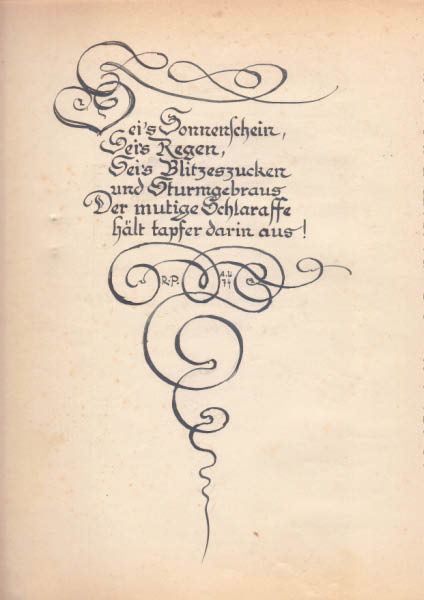 Sei's Sonnenschein,
Sei's Regen,
Sei's Blitzeszucken
und Sturmgebraus
Der mutige Schlaraffe
hält tapfer darin aus!
R:P: